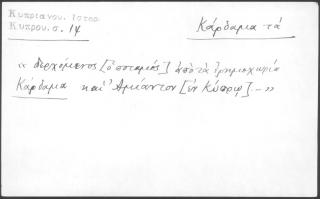 Κυπριανου. Ιστορ.
Κυπρου. σ. 14
Κάρδαμα τά
« Ἀρχόμενος [ὁ ποταμός] ἀπὸ τὰ ἐρημοχωρία
Κάρδαμα καὶ Ἀμίαντον [ἐν Κύπρῳ] — »